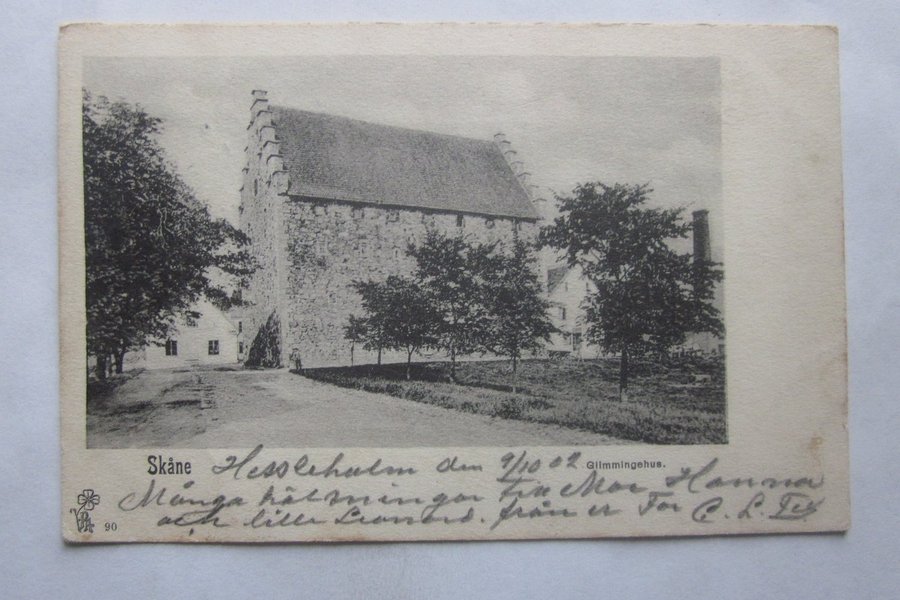 Skåne Hessleholm den 9/10 02 Glimmingehus.
Många hälsningar till Mor Hanna
och lille Leonard. från er Far C. L.
90